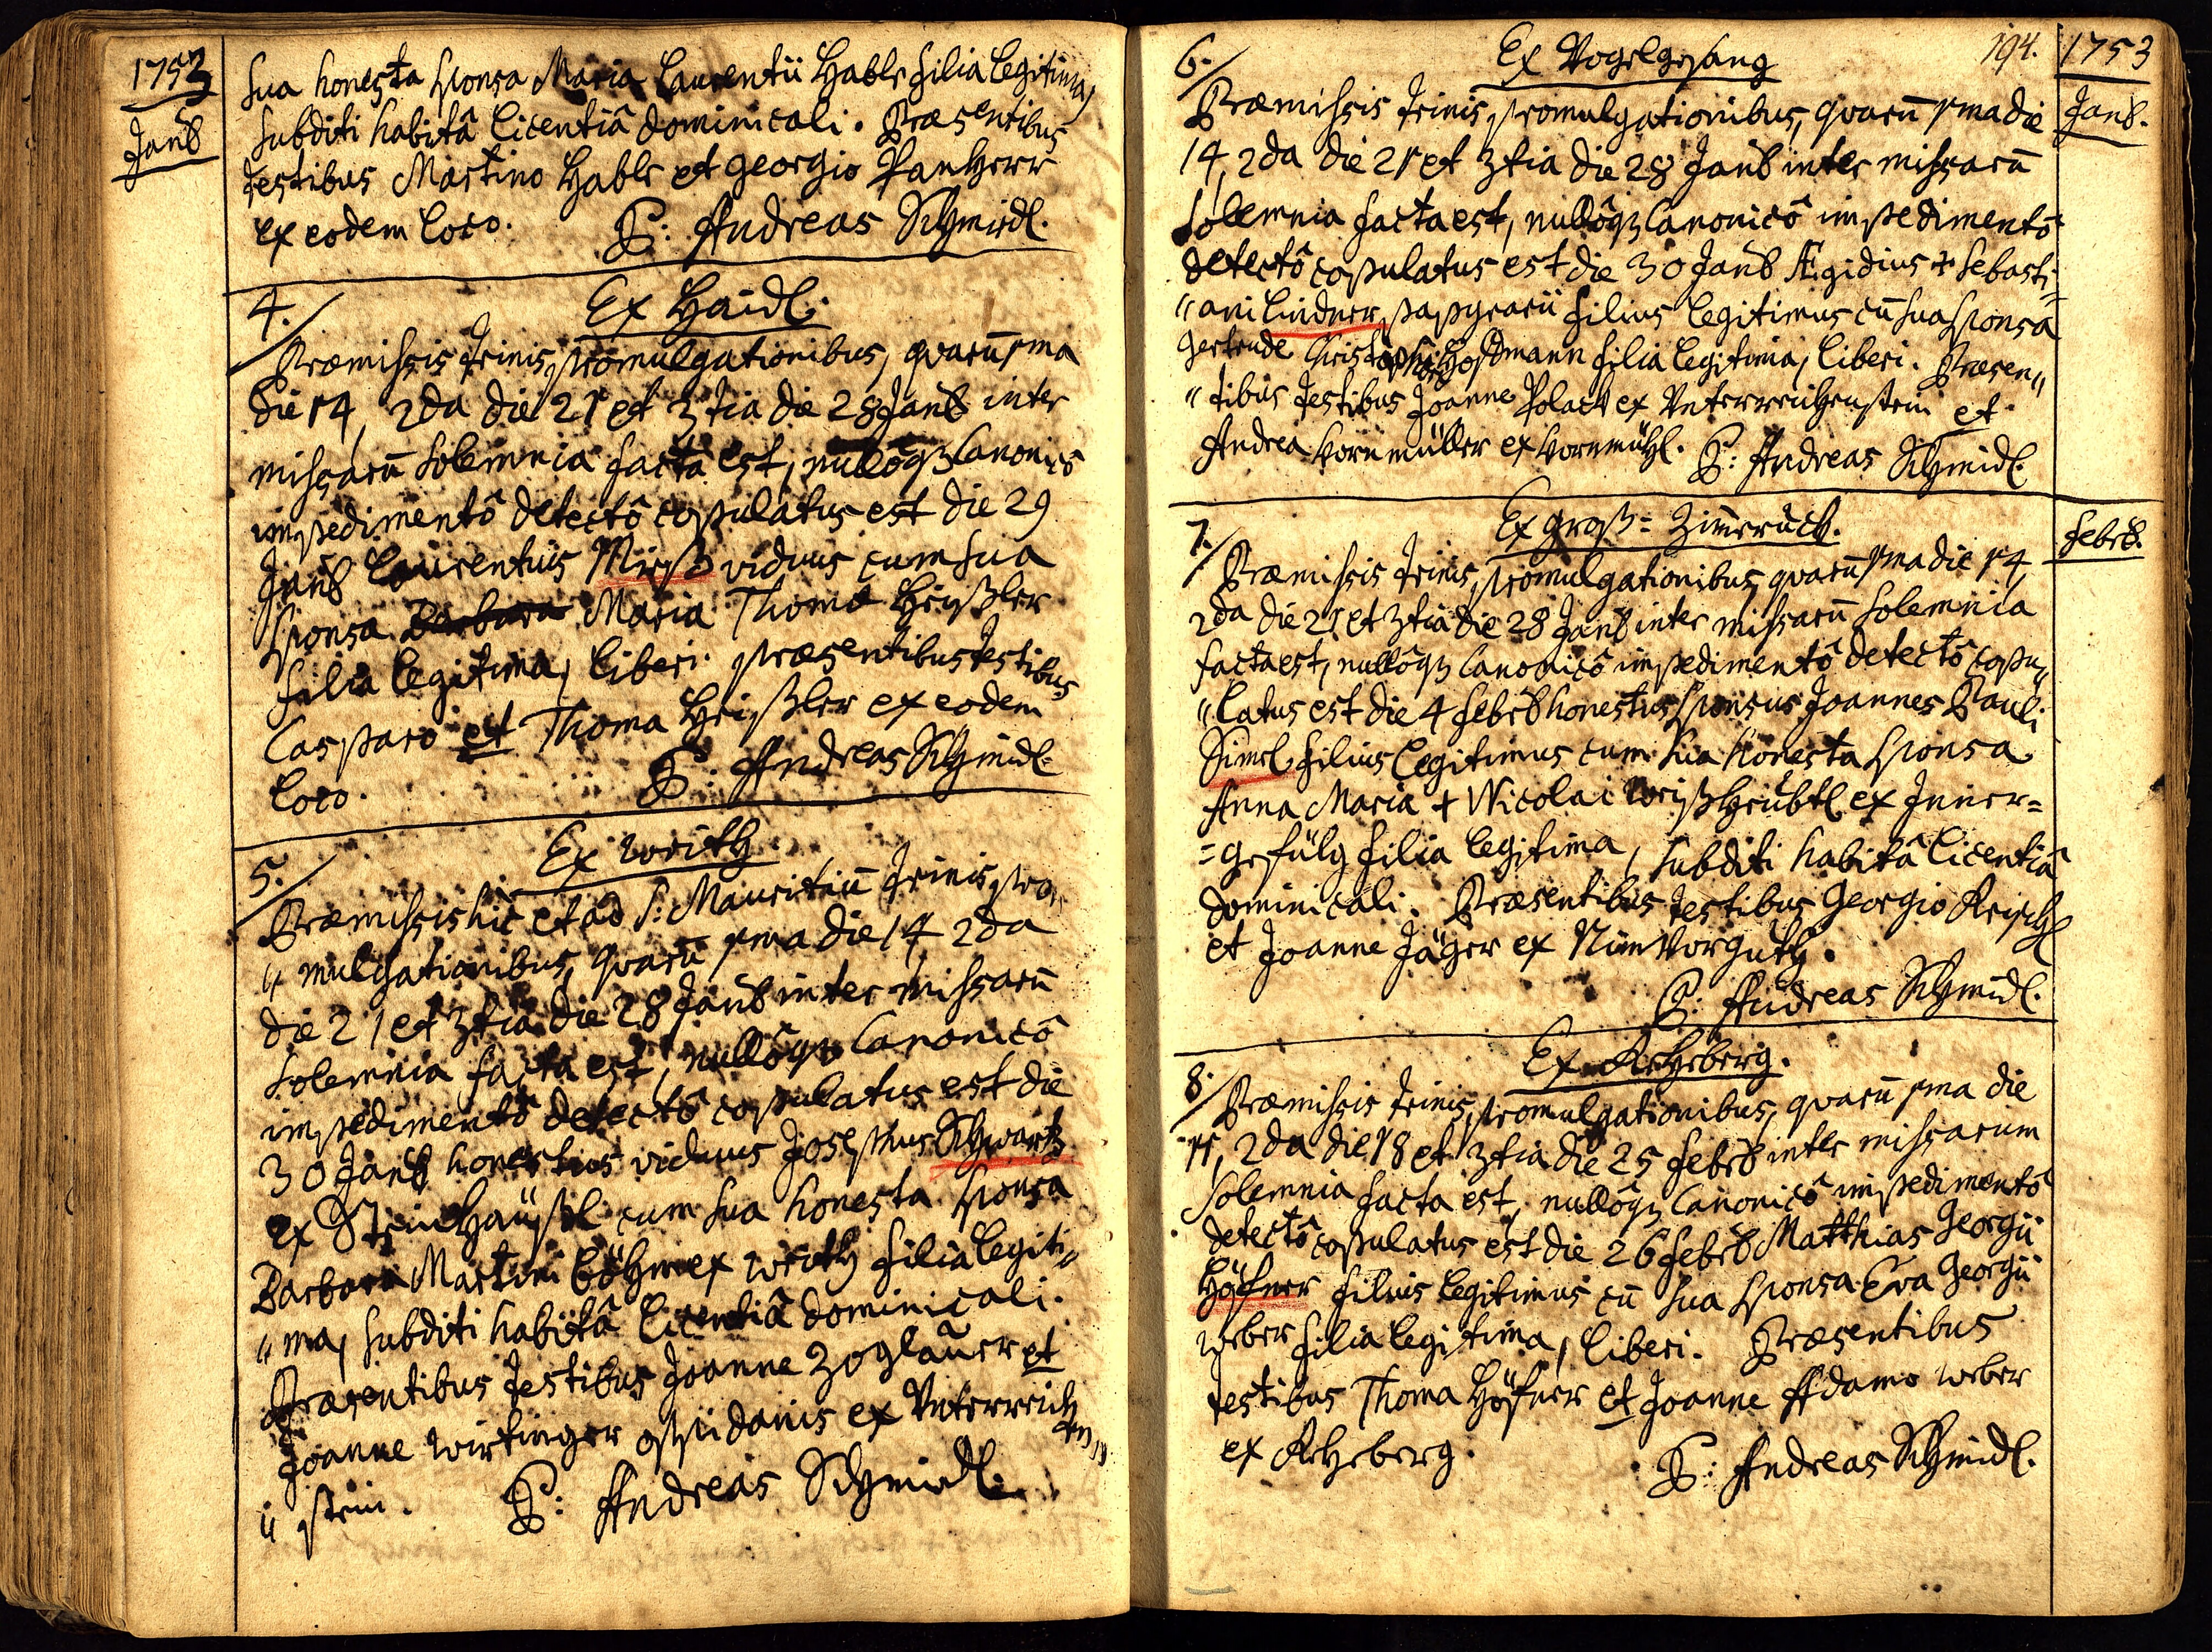 1753
Janȣ
sua honesta sponsa Maria Laurentii Hable filia legitima,
subditi habitâ licentiâ dominicali. Præsentibus
testibus Martino Hable et Georgio Panherr
ex eodem loco. P: Andreas Schmidl.
4. Ex Haidl.
Præmissis trinis promulgationibus, quarū 1ma
die 14, 2da die 21 et 3tia die 28 Janȣ inter
missarū solemnia facta est, nullôq3 Canonicô
impedimentô detectô copulatus est die 29
Janȣ Laurentius viduus cum sua
sponsa Barbara Maria Thomæ Heißler
filia legitima, liberi. præsentibus testibus
Casparo et Thoma Heißler ex eodem
loco. P: Andreas Schmidl.
5. Ex
Præmissis hic et ad S: Mauritiū trinis pro„
„mulgationibus, quarū 1ma die 14, 2da
die 21 et 3tia die 28 Janȣ inter missarū
solemnia facta est, nullôq3 Canonicô
impedimentô detectô copulatus est die
30 Janȣ honestus viduus Josephus Schwartz
ex cum sua honesta sponsa
Barbara Martini Böhm ex filia legiti„
„ma, subditi habitâ licentiâ dominicali.
Præsentibus testibus Joanne Zoglauer et
Joanne Wirtinger oppidanis ex Unterreich
en„
„stein. P: Andreas Schmidl.
6. Ex Vogelgesang 194. 1753
Janȣ.
Præmissis trinis promulgationibus, quarū 1ma die
14, 2da die 21 et 3tia die 28 Janȣ inter missarū
solemnia facta est, nullôq3 Canonicô impedimentô
detectô copulatus est die 30 Janȣ Ægidius + Sebasti„
„ani Lindner, filius legitimus cū sua sponsa
Gertrude Christophori Hoffmann filia legitima, liberi. Præsen„
„tibus testibus Joanne Polack ex Unterreichenstein et
Andrea Kornmüller ex Kornmühl. P: Andreas Schmidl.
Febrȣ.
7. Ex Groß= Zimeruck.
Præmissis trinis promulgationibus, quarū 1ma die 14,
2da die 21 et 3tia die 28 Janȣ inter missarū solemnia
facta est, nullôq3 Canonicô impedimentô detectô copu„
„latus est die 4 Febrȣ honestus sponsus Joannes Pauli
Simel filius legitimus cum sua honesta sponsa
Anna Maria + Nicolai Weißheubtl ex Inner=
=gefülg filia legitima, subditi habitâ licentiâ
dominicali. Præsentibus testibus Georgio
et Joanne Jäger ex
P: Andreas Schmidl.
8. Ex
Præmissis trinis promulgationibus, quarū 1ma die
11, 2da die 18 et 3tia die 25 Febrȣ inter missarum
solemnia facta est, nullôq3 Canonicô impedimentô
detectô copulatus est die 26 Febrȣ Matthias Georgii
Höfner filius legitimus cū sua sponsa Eva Georgii
Weber filia legitima, liberi. Præsentibus
testibus Thoma Höfner et Joanne Adamo Weber
ex P: Andreas Schmidl.